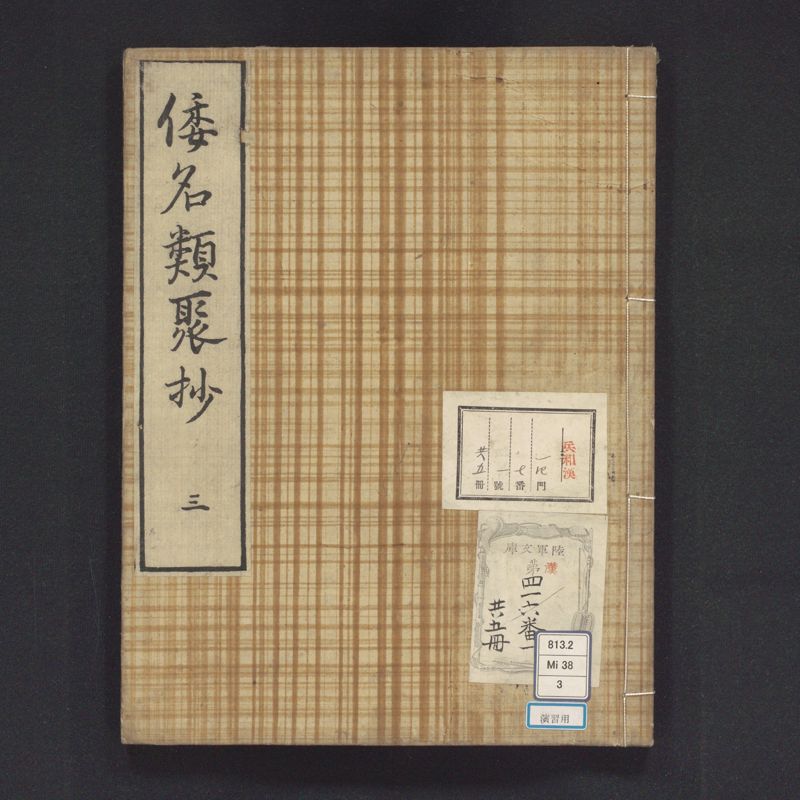 倭名類聚抄
三
兵和漢
一四門
七番
一號
共五冊
陸軍文庫
漢第
四一六番一
共五冊
813.2
Mi 38
3
演習用